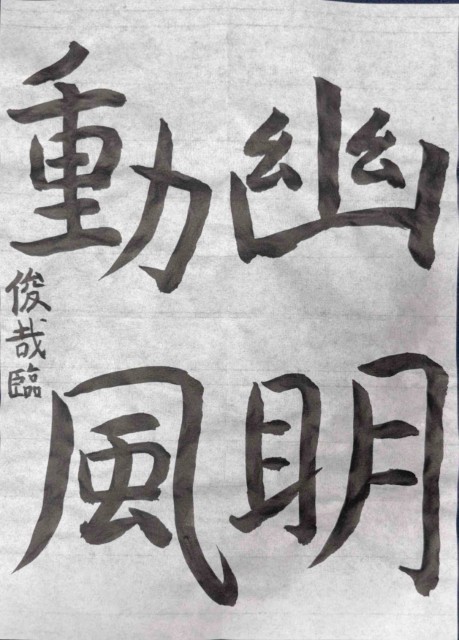 幽明
動風
俊哉臨